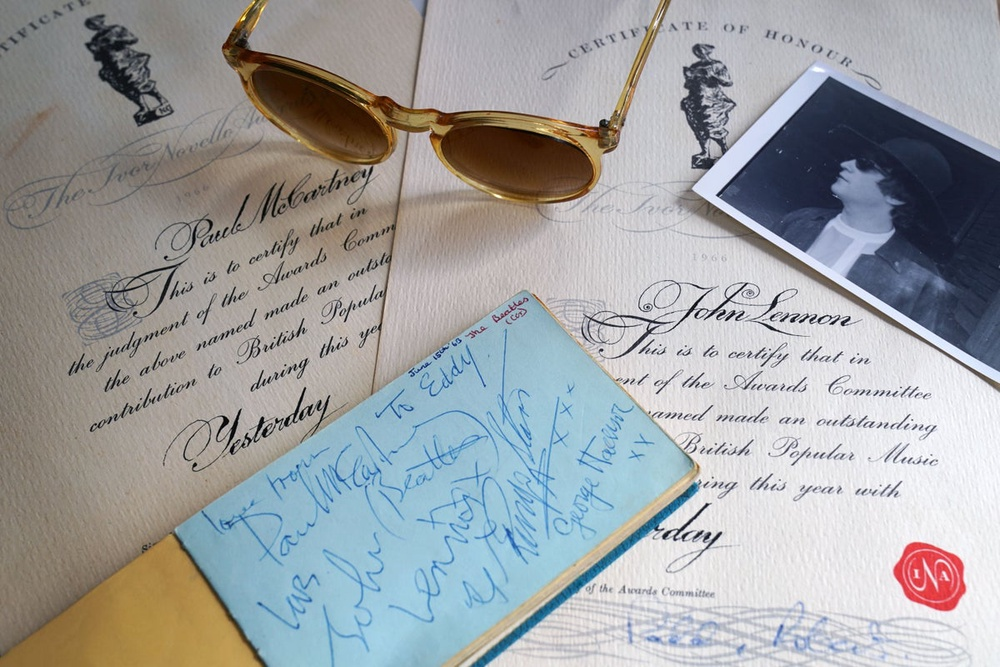 CERTIFICATE
The Ivor Novello
1966
Paul McCartney
This is to certify that in
the judgment of the Awards Comm
the above named made an outsta
contribution to British Popula
during this ye
Yesterday
CERTIFICATE OF HONOUR
The Ivor Nov
1966
John Lennon
This is to certify that in
ent of the Awards Committee
named made an outstanding
British Popular Music
ring this year with
rday
of the Awards Committee
INA
June 18th 63 The Beatles
To Eddy
love from
Paul McCartney
(Beatles)
luv
John
Lennon
xx
Ringo Starr
xxx
George Harrison
xx